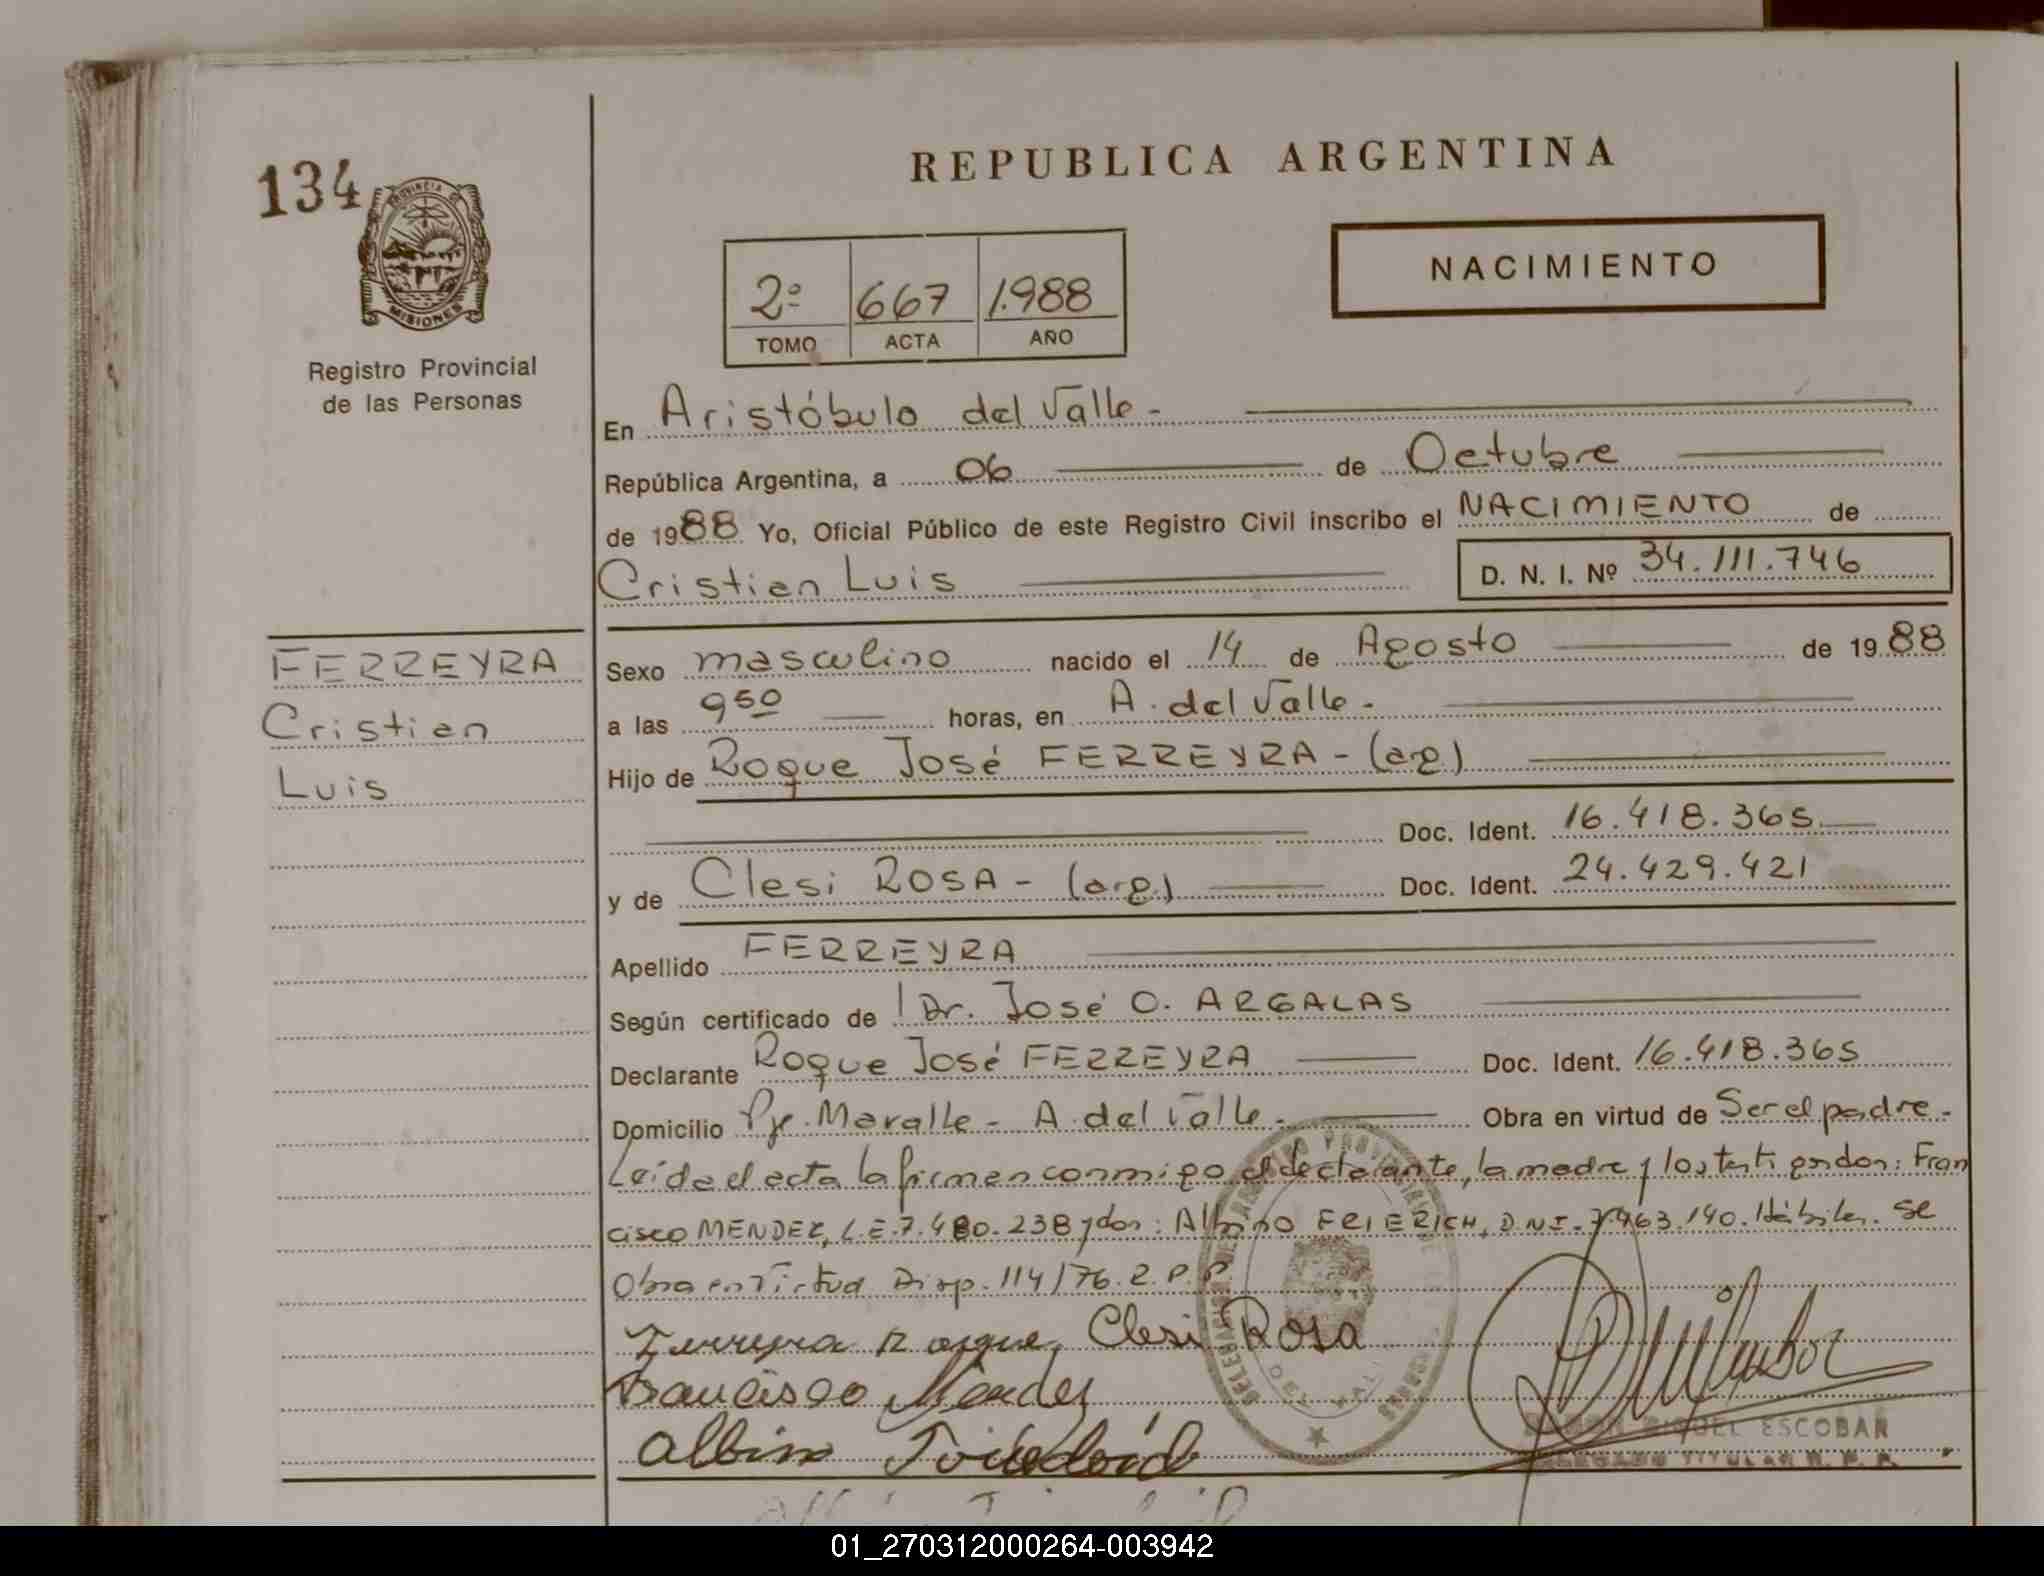 134
PROVINCIA DE
MISIONES
Registro Provincial
de las Personas
FERREYRA
Cristian
Luis
REPUBLICA ARGENTINA
NACIMIENTO
2º 667 1.988
TOMO ACTA AÑO
En Aristóbulo del Valle -
República Argentina, a 06 de Octubre
de 1988 Yo, Oficial Público de este Registro Civil inscribo el NACIMIENTO de
Cristian Luis D. N. I. Nº 34.111.746
Sexo masculino nacido el 14 de Agosto de 1988
a las 9 50 horas, en A. del Valle.
Hijo de Roque José FERREYRA - (arg)
Doc. Ident. 16.418.365
y de Clesi ROSA - (arg) Doc. Ident. 24.429.421
Apellido FERREYRA
Según certificado de Dr. José O. ARGALAS
Declarante Roque José FERREYRA Doc. Ident. 16.418.365
Domicilio Pje. Maralle - A. del Valle. Obra en virtud de Ser el padre.
Leída el acta la firman conmigo el declarante, la madre y los testigos don: Fran
cisco MENDEZ, L.E. 7.480.238 y don: Albino FRIERICH, D.N.I. 7.463.140. Hábiles. Se
Obra en Virtud Disp. 114/76. R.P.P.
Ferreyra Roque, Clesi Rosa
Francisco Mendez
Albino
MIGUEL ESCOBAR
TITULAR R. P. P.
01_270312000264-003942